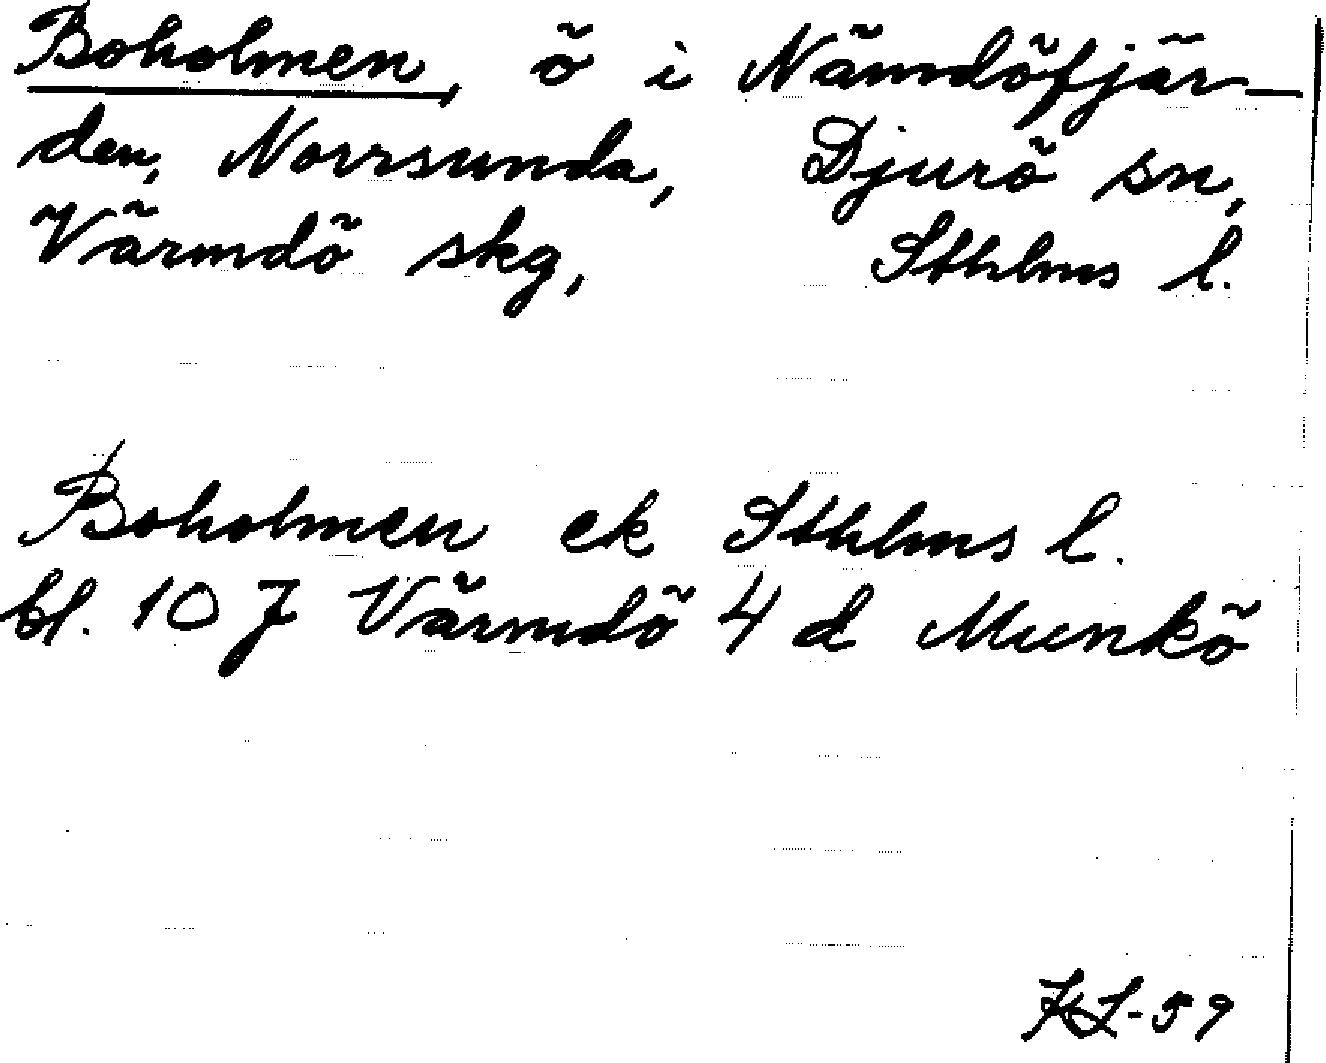 Boholmen, ö i Nämdöfjär-
den, Norrsunda, Djurö sn,
Värmdö skg, Sthlms l.
Boholmen ek Sthlms l.
bl. 107 Värmdö 4 d Munkö
KL-59